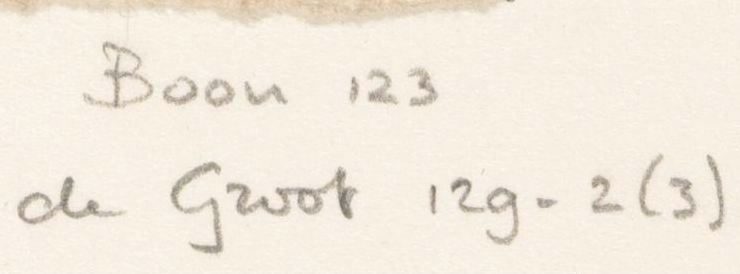 Boon 123
de Groot 129-2(3)